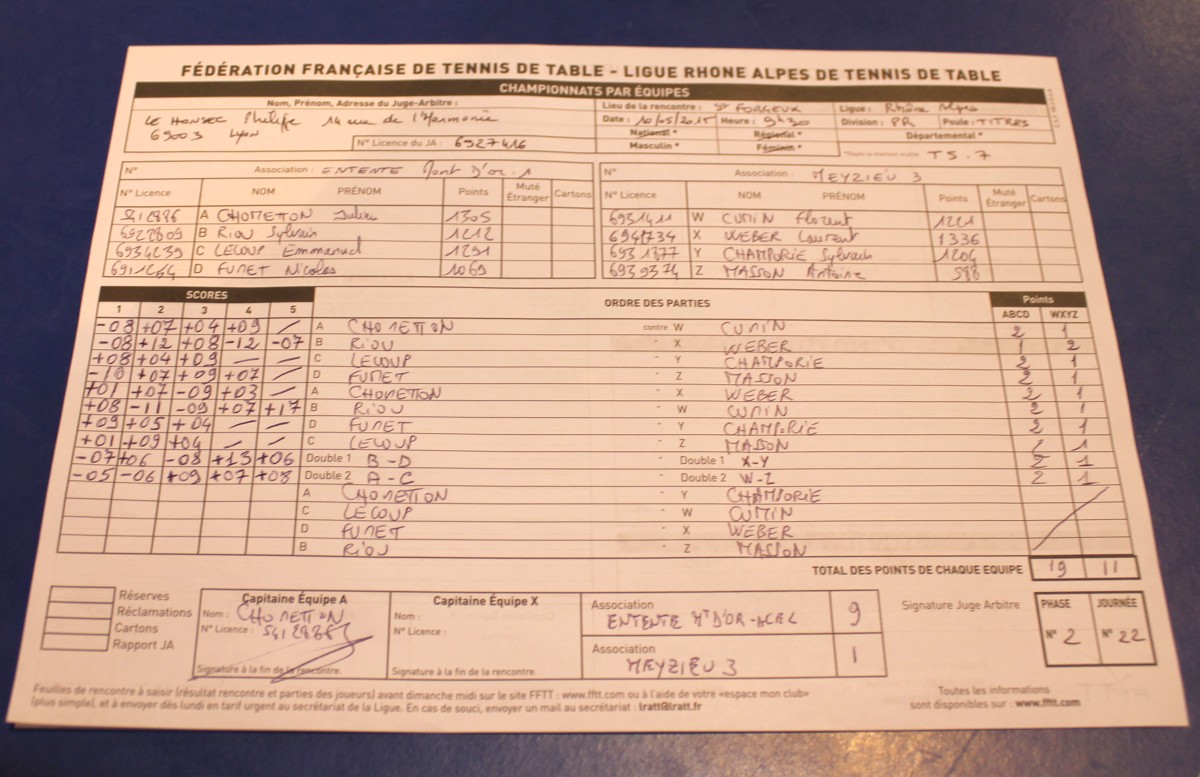 FÉDÉRATION FRANÇAISE DE TENNIS DE TABLE - LIGUE RHONE ALPES DE TENNIS DE TABLE
CHAMPIONNATS PAR ÉQUIPES
Nom, Prénom, Adresse du Juge-Arbitre : Lieu de la rencontre : ST FORGEUX Ligue : Rhône Alpes
LE HONSEC Philippe 14 rue de l'Harmonie Date : 10/05/2015 Heure : 9h30 Division : PR Poule : TITRES
69003 Lyon N° Licence du JA : 6927416 National * Régional * Départemental *
Masculin * Féminin * T5.7
N° Association : ENTENTE Mont D'or.1 N° Association : MEYZIEU 3
N° Licence NOM PRÉNOM Points Muté Étranger Cartons N° Licence NOM PRÉNOM Points Muté Étranger Cartons
A CHOMETTON Julien 1305 6931411 W CUMIN Florent 1221
6922809 B RIOU Sylvain 1212 694734 X WEBER Laurent 1336
6934239 C LELOUP Emmanuel 1291 6931377 Y CHAMPORIE Sylvain 1204
D FUMET Nicolas 1069 6939374 Z MASSON Antoine 598
SCORES ORDRE DES PARTIES Points
1 2 3 4 5 ABCD WXYZ
-08 +07 +04 +09 / A CHOMETTON contre W CUMIN 2 1
-08 +12 +08 -12 -07 B RIOU - X WEBER 1 2
+08 +04 +09 — — C LELOUP - Y CHAMPORIE 2 1
-10 +07 +09 +07 / D FUMET - Z MASSON 2 1
+01 +07 -09 +03 / A CHOMETTON - X WEBER 2 1
+08 -11 -09 +07 +17 B RIOU - W CUMIN 2 1
+09 +05 +04 — — D FUMET - Y CHAMPORIE 2 1
+01 +09 +04 / / C LELOUP - Z MASSON 2 1
-07 +06 -08 +13 +06 Double 1 B-D - Double 1 X-Y 2 1
-05 -06 +09 +07 +08 Double 2 A-C - Double 2 W-Z 2 1
A CHOMETTON - Y CHAMPORIE
C LELOUP - W CUMIN
D FUMET - X WEBER
B RIOU - Z MASSON
TOTAL DES POINTS DE CHAQUE EQUIPE 19 11
Réserves
Réclamations
Cartons
Rapport JA
Capitaine Équipe A
Nom : CHOMETTON
N° Licence :
Signature à la fin de la rencontre.
Capitaine Équipe X
Nom :
N° Licence :
Signature à la fin de la rencontre.
Association
ENTENTE MT D'OR-ACEL 9
Association
MEYZIEU 3 1
Signature Juge Arbitre
PHASE JOURNÉE
N° 2 N° 22
Feuilles de rencontre à saisir (résultat rencontre et parties des joueurs) avant dimanche midi sur le site FFTT : www.fftt.com ou à l'aide de votre «espace mon club»
(plus simple), et à envoyer dès lundi en tarif urgent au secrétariat de la Ligue. En cas de souci, envoyer un mail au secrétariat : lratt@lratt.fr
Toutes les informations
sont disponibles sur : www.fftt.com